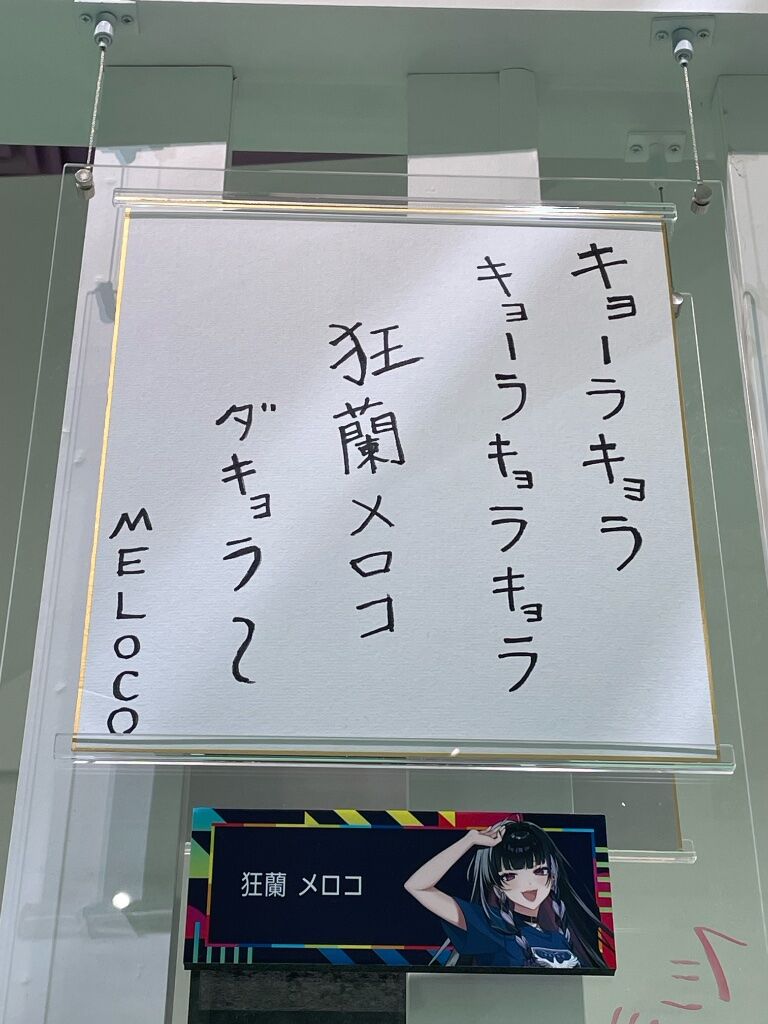 キョーラキョラ
キョーラキョラキョラ
狂蘭メロコ
ダキョラ〜
MELOCO
狂蘭 メロコ